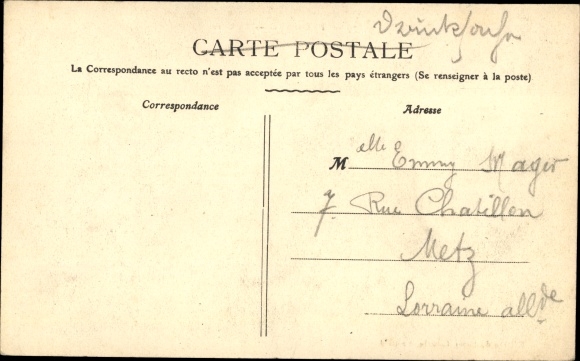 Drucksache
CARTE POSTALE
La Correspondance au recto n'est pas acceptée par tous les pays étrangers (Se renseigner à la poste)
Correspondance
Adresse
Melle Emmy Mager
7. Rue Chatillon
Metz
Lorraine allde